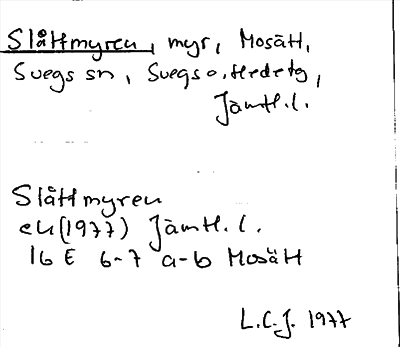 Slåttmyren, myr, Mosätt,
Svegs sn, Svegs o. Hedetg,
Jämtl. l.
Slåttmyren
ek (1977) Jämtl. l.
16 E 6-7 a-b Mosätt
L.C.J. 1977